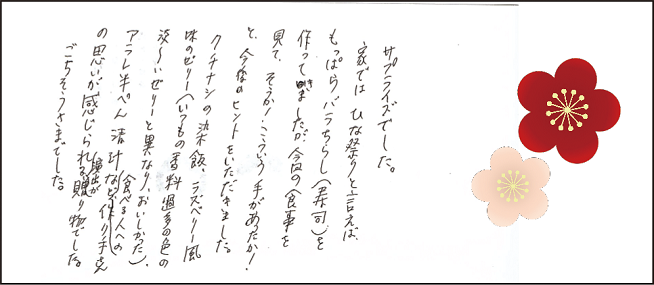 サプライズでした。
家では ひな祭りと言えば、
もっぱらバラちらし(寿司)を
作ってきましたが、今回の食事を
見て、そうか!こういう手があったか!
と、今後のヒントをいただきました。
クチナシの染飯、ラズベリー風
味のゼリー(いつもの香料過多の色の
淡〜いゼリーと異なり、おいしかった)、
アラレ半ぺん 清汁など、作り手さん
(食べる人への
の思いが感じられる贈り物でした。
演出が
ごちそうさまでした。